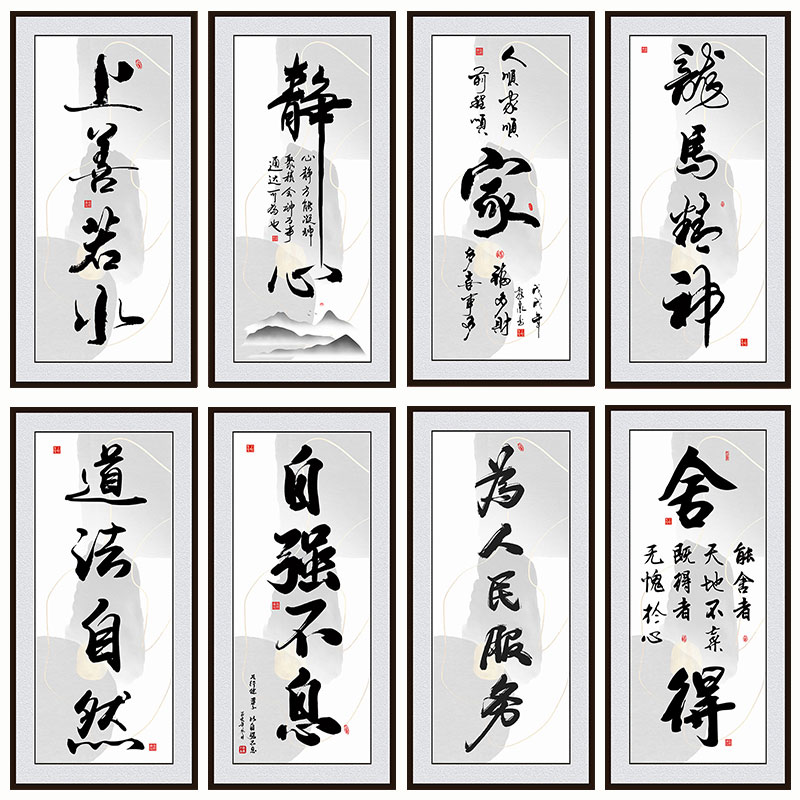 上善若水
静
心静方能凝神
聚精会神万事
通达可为也
心
人順家順
前程順
家
戊戌年
福多財
多喜事多
龍馬精神
道法自然
自强不息
天行健君子
以自强不息
為人民服务
舍
能舍者
天地不棄
既得者
无愧於心
得